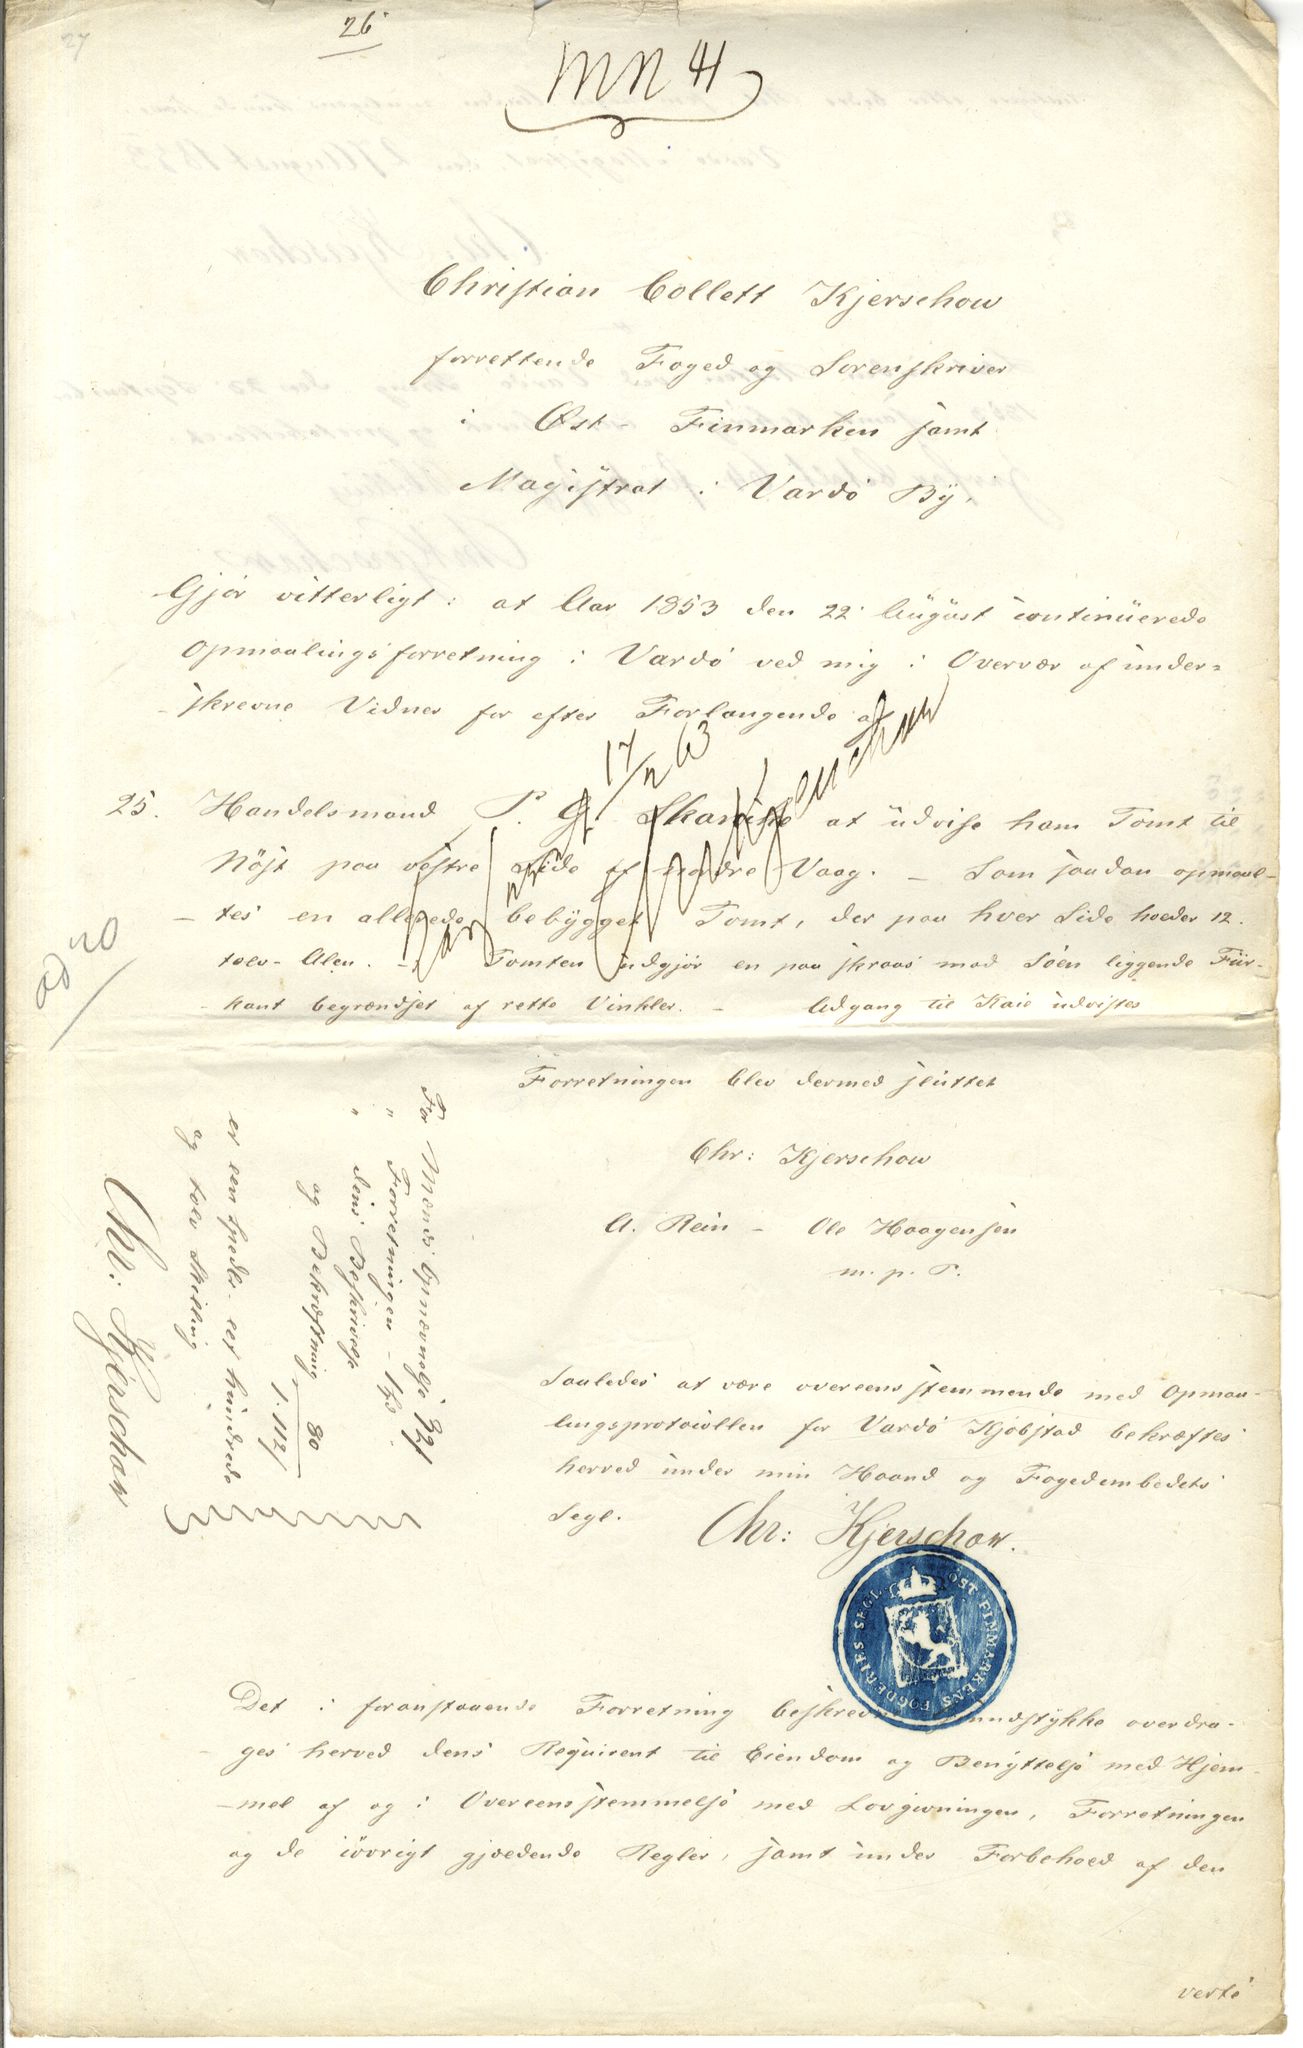 27
26
MN 41
Christian Collett Kjerschow
forrettende Foged og Sorenskriver
i Øst-Finmarken samt
Magistrat i Vardö By,
Gjör vitterligt: at Aar 1853 den 22 August continuerede
Opmaalingsforretning i Vardö ved mig i Overvær af under-
-skrevne Vidner for efter Forlangende af
17/2 63
25. Handelsmand P. G. at udvise ham Tomt til
Nöst paa vestre Side af Vaag. – Som saadan opmaal-
-tes en allerede bebygget Tomt, der paa hver Side holder 12.
tolv Alen. – Tomten udgjör en paa skraas mod Söen liggende Fiir-
-kant begrændset af rette Vinkler. – Adgang til Kaie udvistes
ad 20
Forretningen blev dermed sluttet
Chr: Kjerschow
A. Rein – Ole Haagensen
m. p. P.
For Mænds Opnævnelse 32 ſ
" Forretningen – 1 Spd.
" dens Beskrivelse
og Bekræftning 80
1. 112 ſ
er een Specid. eet hundrede
og tolv Skilling
Chr: Kjerschow
Saaledes at være overeensstemmende med Opmaa-
lingsprotocollen for Vardö Kjöbstad bekræftes
herved under min Haand og Fogedembedets
Segl. Chr: Kjerschow.
ÖST-FINMARKENS FOGDERIES SEGL
Det i foranstaaende Forretning overdra-
-ges herved dens Reqvirent til Eiendom og Benyttelse med Hjem-
-mel af og i Overeensstemmelse med Lovgivningen, Forretningen
og de iövrigt gjældende Regler, samt under Forbehold af den
verte